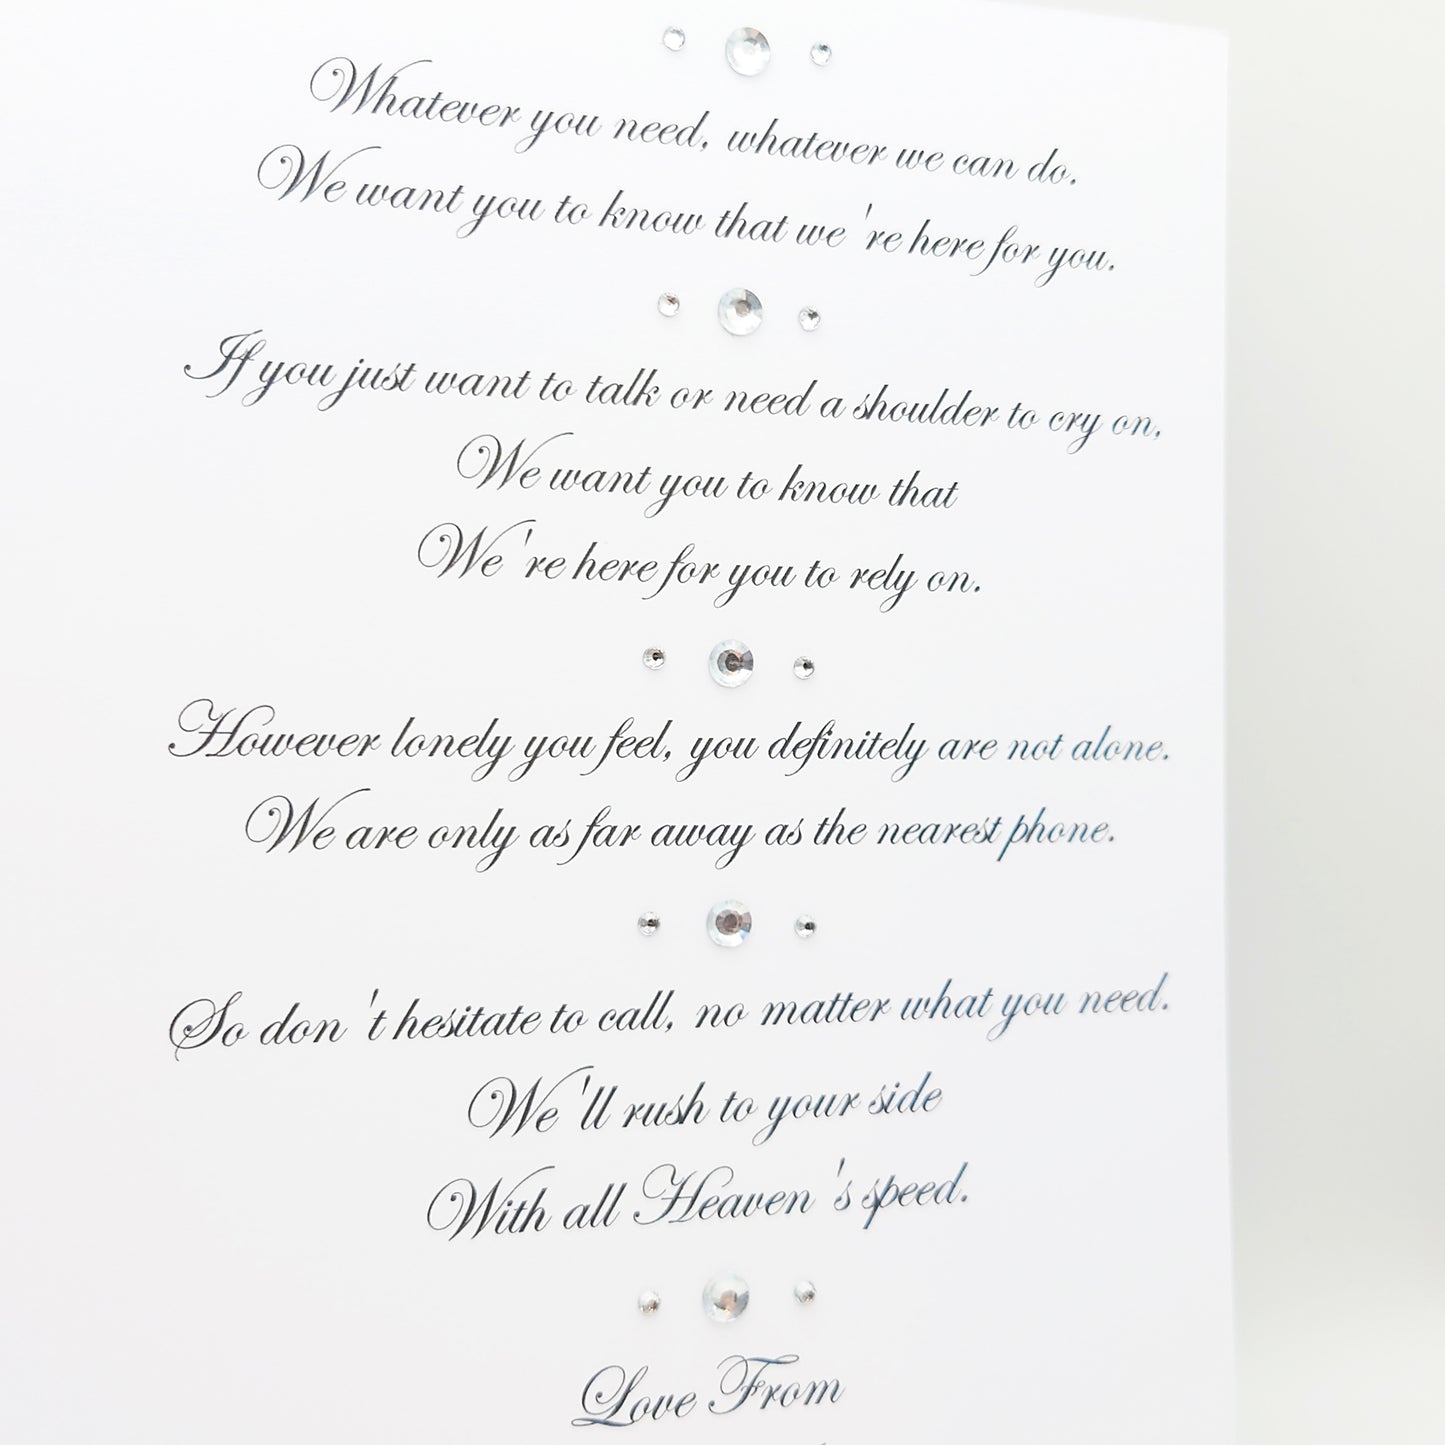 Whatever you need, whatever we can do.
We want you to know that we're here for you.
If you just want to talk or need a shoulder to cry on,
We want you to know that
We're here for you to rely on.
However lonely you feel, you definitely are not alone.
We are only as far away as the nearest phone.
So don't hesitate to call, no matter what you need.
We'll rush to your side
With all Heaven's speed.
Love From